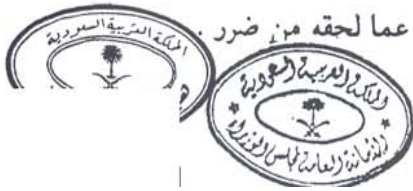 عما لحقه من ضرر .
المملكة العربية السعودية
المملكة العربية السعودية
الأمانة العامة لمجلس الوزراء